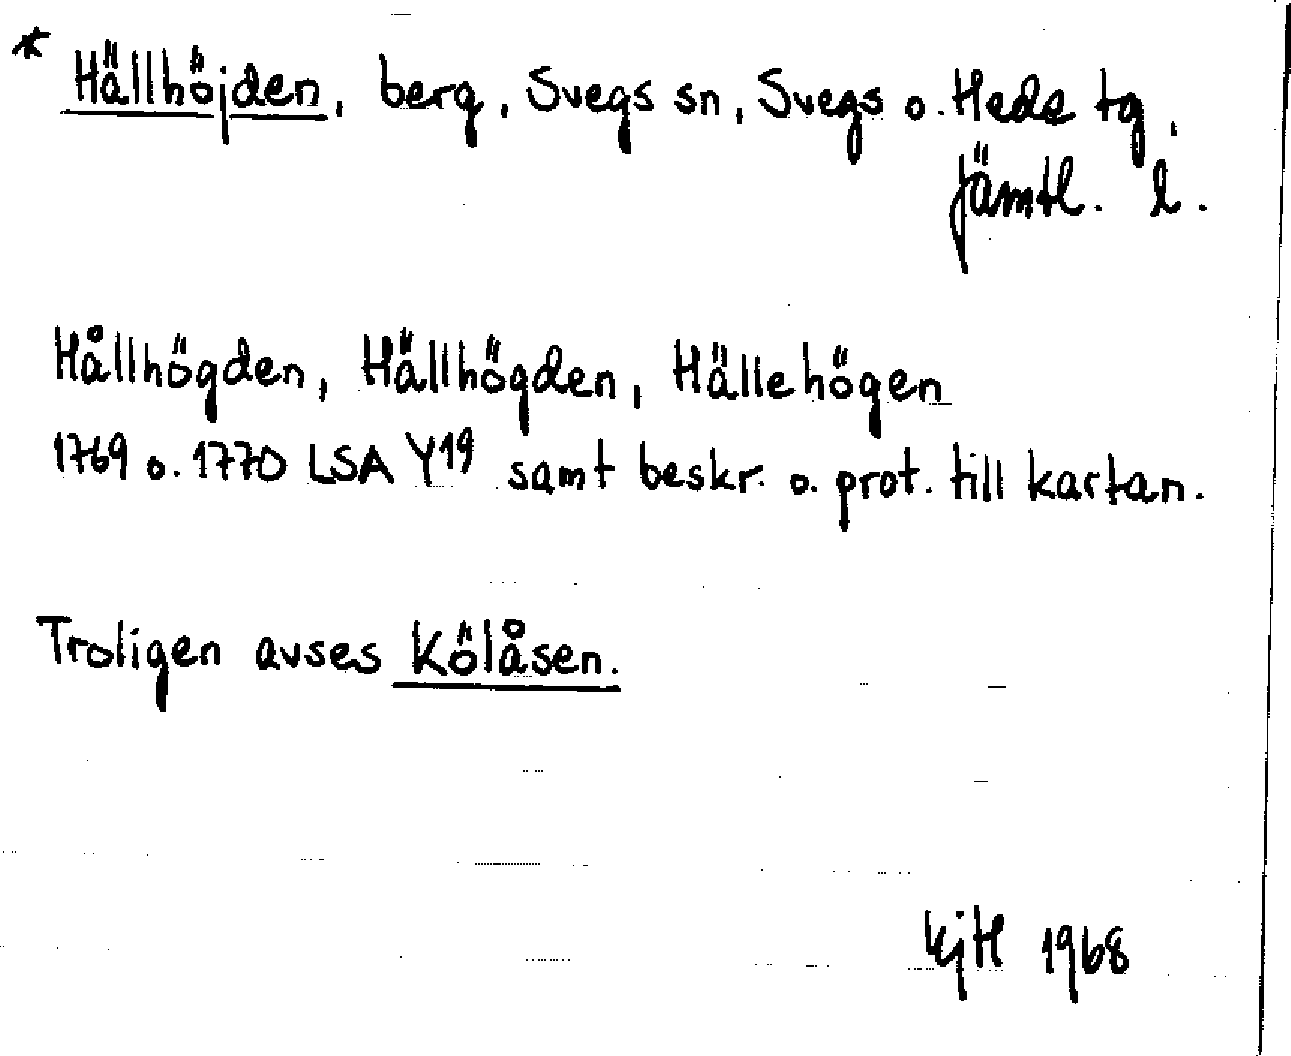 * Hällhöjden, berg, Svegs sn, Svegs o. Heds tg,
Jämtl. l.
Hållhögden, Hällhögden, Hällehögen
1769 o. 1770 LSA Y19 samt beskr. o. prot. till kartan.
Troligen avses Kölåsen.
KjH 1968